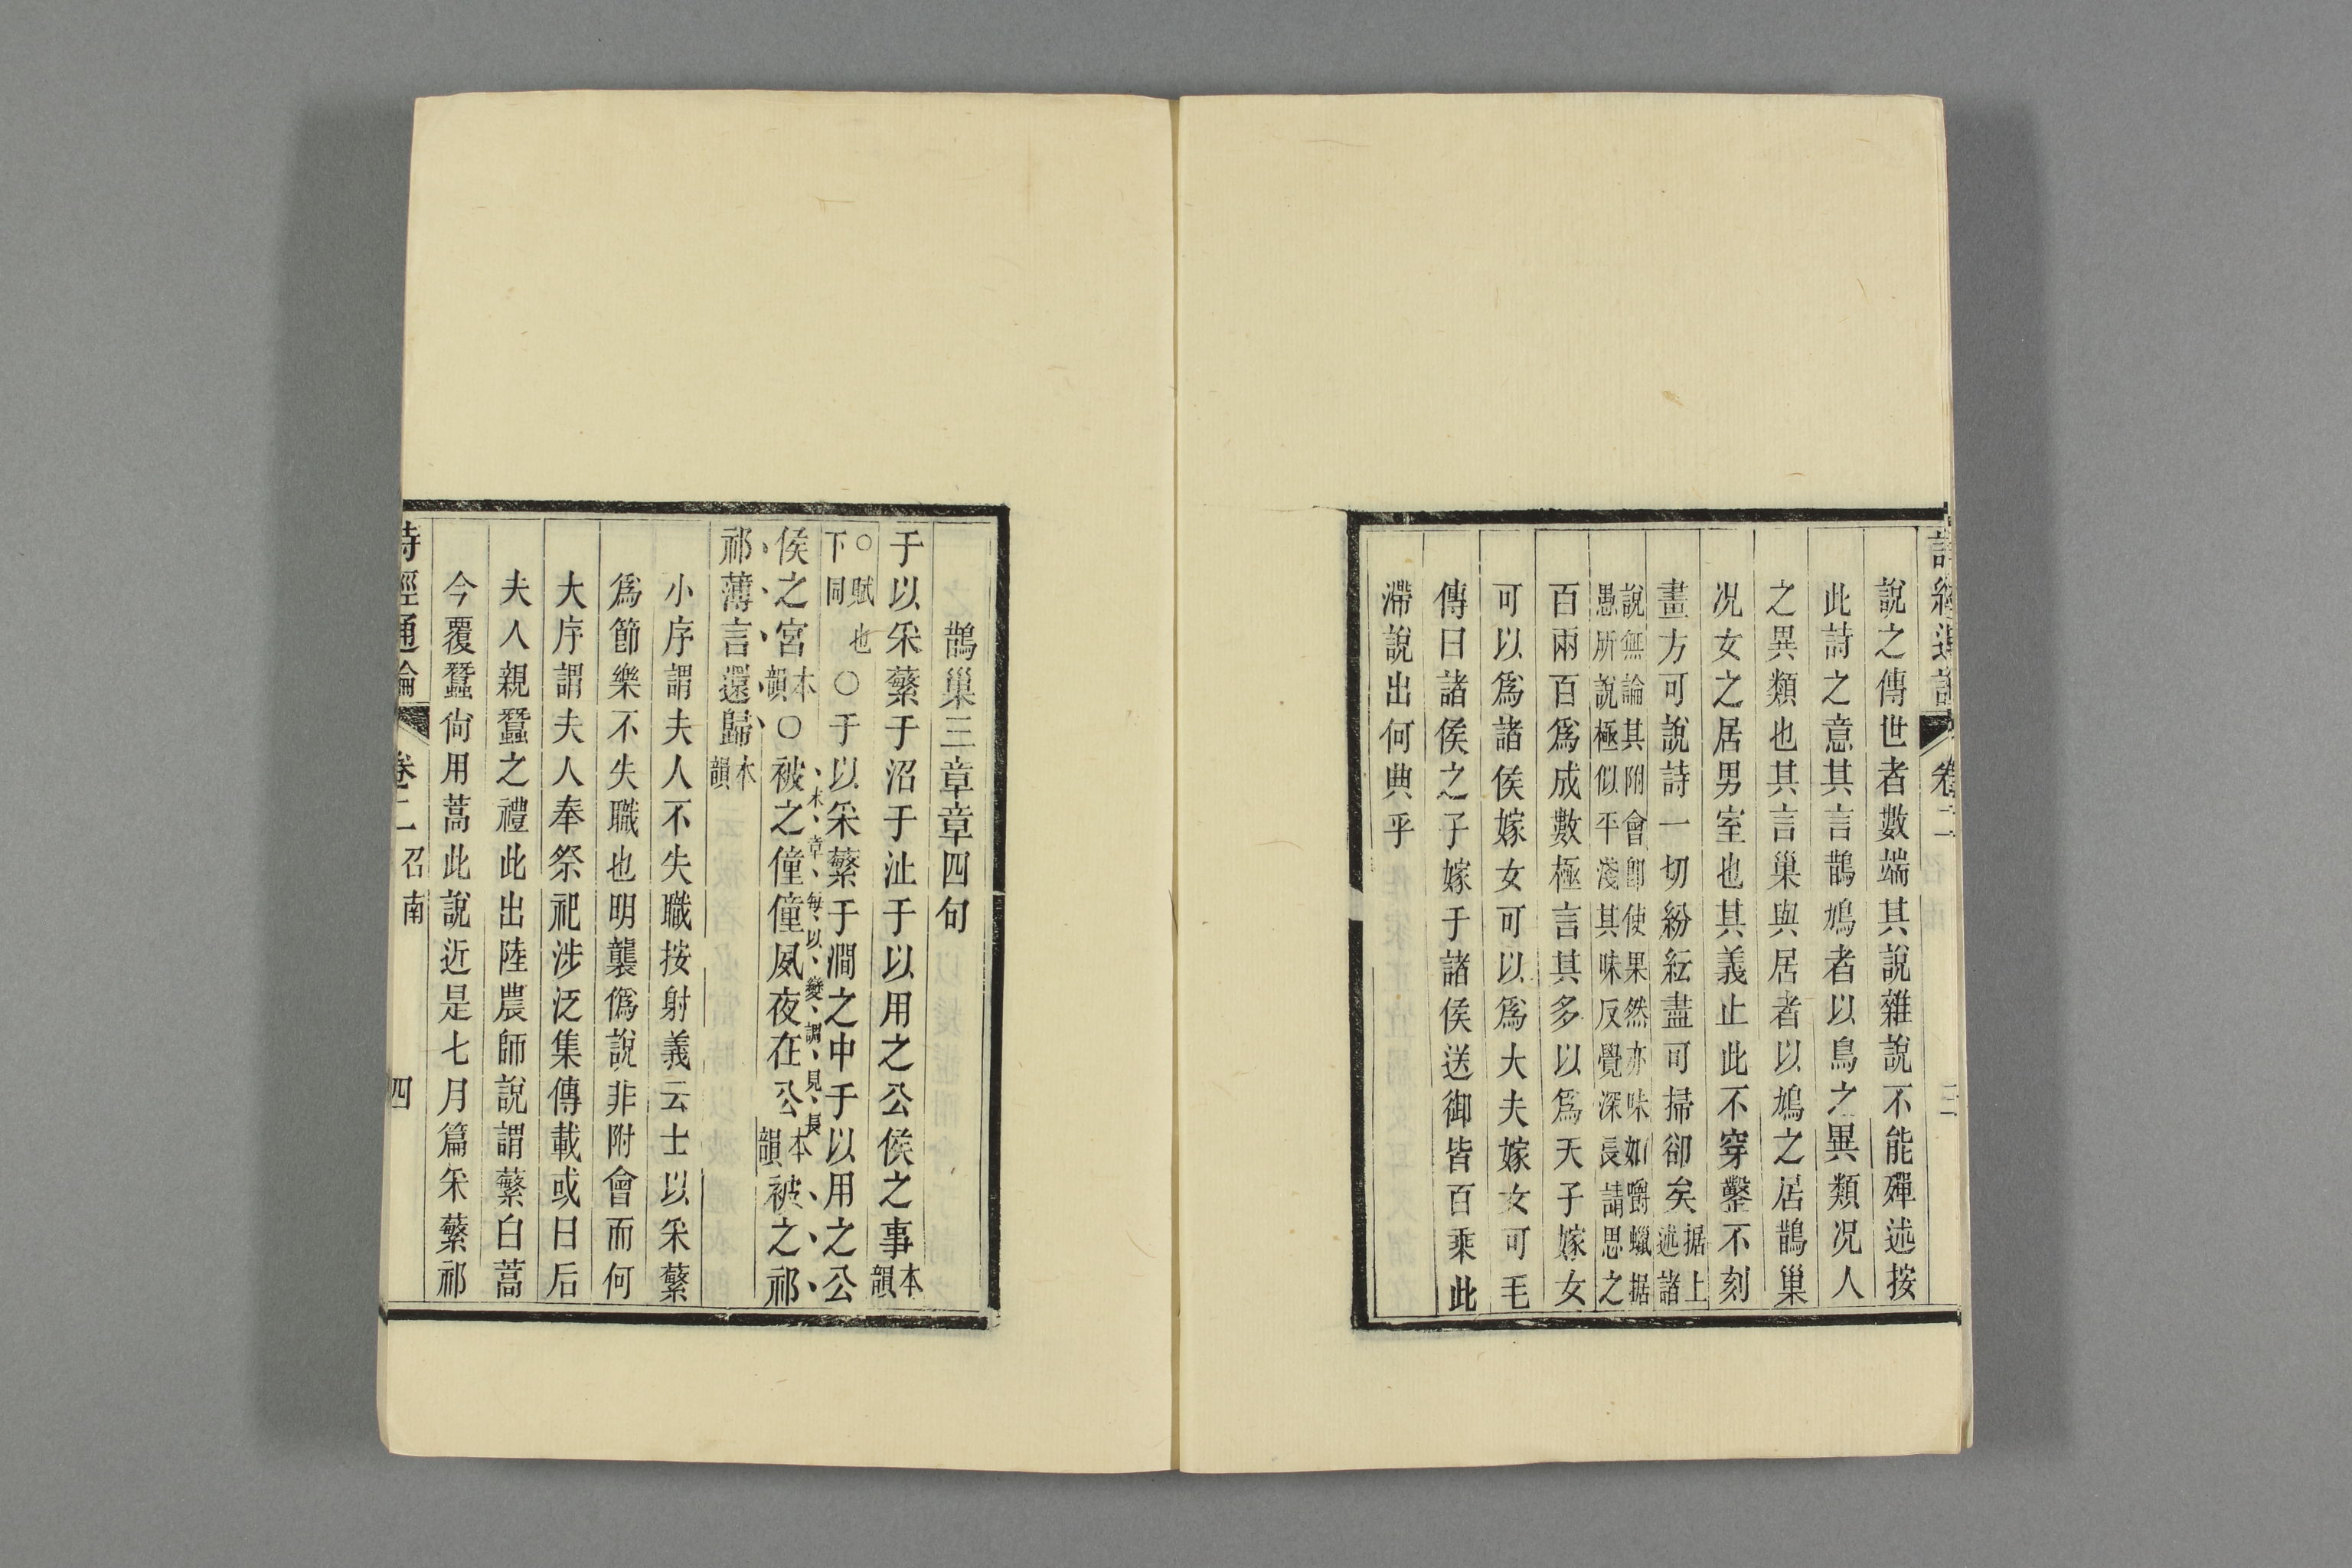 說之傳世者數端其說雜說不能殫述按
此詩之意其言鵲鳩者以鳥之異類况人
之異類也其言巢與居者以鳩之居鵲巢
况女之居男室也其義止此不穿鑿不刻
畫方可說詩一切紛紜盡可掃卻矣据上述諸
說無論其附會卽使果然亦味如嚼蠟据
愚所說極似平淺其味反覺深長請思之
百兩百爲成數極言其多以爲天子嫁女
可以爲諸侯嫁女可以爲大夫嫁女可毛
傳曰諸侯之子嫁于諸侯送御皆百乘此
滯說出何典乎
鵲巢三章章四句
于以采蘩于沼于沚于以用之公侯之事本韻
○賦也下同○于以采蘩于澗之中于以用之公
侯之宮本韻○被之僮僮夙夜在公本韻被之祁
末章每以變調見長
祁薄言還歸本韻
小序謂夫人不失職按射義云士以采蘩
爲節樂不失職也明襲僞說非附會而何
大序謂夫人奉祭祀涉泛集傳載或曰后
夫人親蠶之禮此出陸農師說謂蘩白蒿
今覆蠶尙用蒿此說近是七月篇采蘩祁
詩經通論 卷二 召南 四